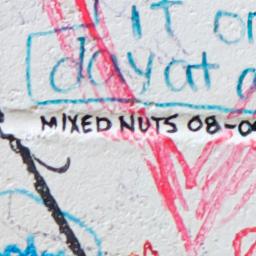 IT
day at
MIXED NUTS 08-0